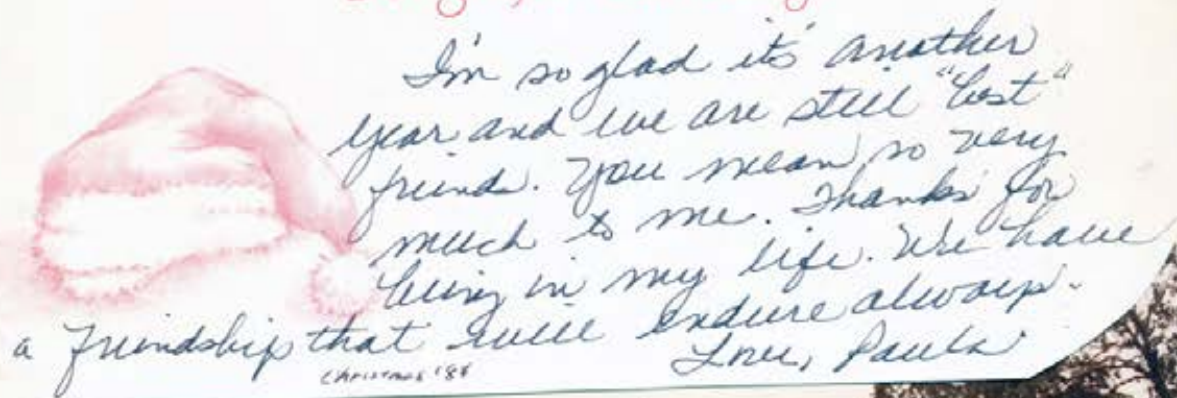 I'm so glad its another
year and we are still "best"
friends. You mean so very
much to me. Thanks for
being in my life. We have
a friendship that will endure always.
Love, Paula
Christmas '88